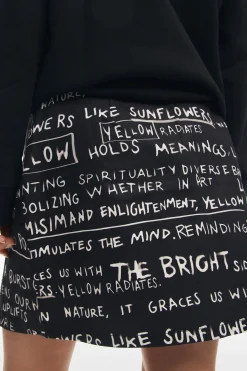 NATURE,
OWERS LIKE SUNFLOWERS
YELLOW RADIATES
LOW HOLDS MEANINGS,
NTING SPIRITUALITY DIVERSE
BOLIZING WHETHER IN ART
MISIM AND ENLIGHTENMENT, YELLOW
STIMULATES THE MIND. REMINDING
BURST CES US WITH THE BRIGHT
ERS. YELLOW RADIATES.
S OUR
UPLIFTS IN NATURE, IT GRACES US WI
RS LIKE SUNFLOWERS